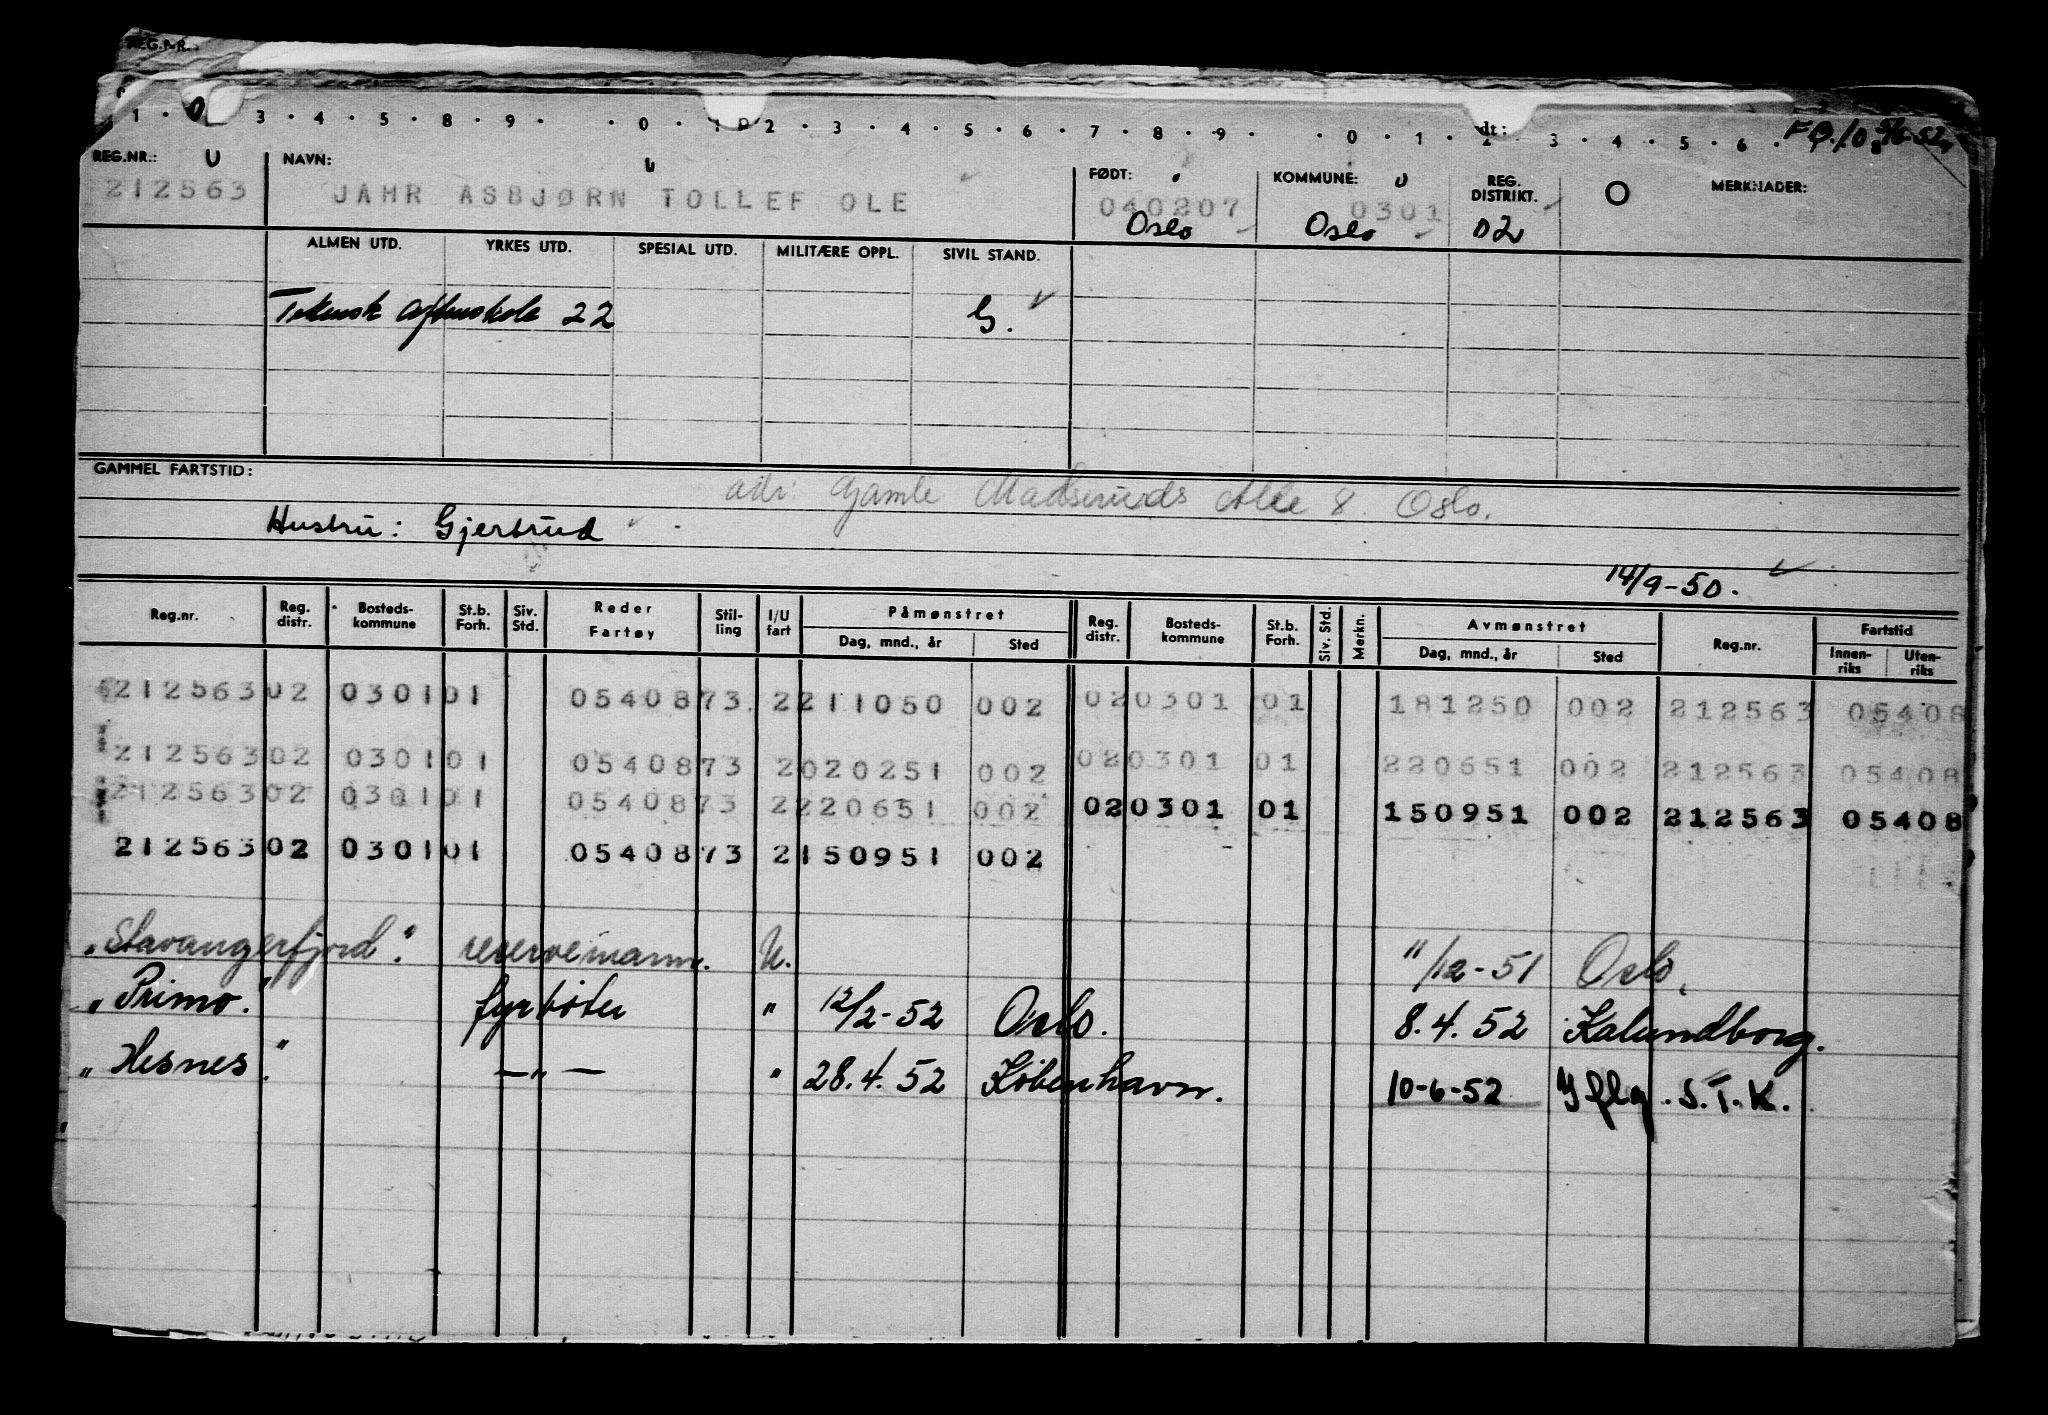 REG.NR.: U NAVN: FØDT: KOMMUNE: REG. DISTRIKT. O MERKNADER:
212563 JAHR ASBJØRN TOLLEF OLE 040207 0301
Oslo Oslo 02
ALMEN UTD. YRKES UTD. SPESIAL UTD. MILITÆRE OPPL. SIVIL STAND.
Teknisk aftenskole 22 G.
GAMMEL FARTSTID:
adr: Gamle Madseruds Alle 8. Oslo.
Hustru: Gjertrud
14/9-50.
Reg.nr. Reg. distr. Bosteds-kommune St.b. Forh. Siv. Std. Reder Fartøy Stil-ling I/U fart Påmønstret Dag, mnd., år Sted Reg. distr. Bosteds-kommune St.b. Forh. Siv. Std. Merkn. Avmønstret Dag, mnd., år Sted Reg.nr. Fartstid Innen-riks Uten-riks
212563 02 0301 01 0540873 2 211050 002 02 0301 01 181250 002 212563 05408
212563 02 0301 01 0540873 2 020251 002 02 0301 01 220651 002 212563 05408
212563 02 0301 01 0540873 2 220651 002 02 0301 01 150951 002 212563 05408
212563 02 0301 01 0540873 2 150951 002
"Stavangerfjord". reservemann. U. "/12-51 Oslo.
"Primo." fyrbøter " 12/2-52 Oslo. 8.4.52 Kalundborg.
"Hesnes". —"— " 28.4.52 København. 10-6-52 S.T.K.